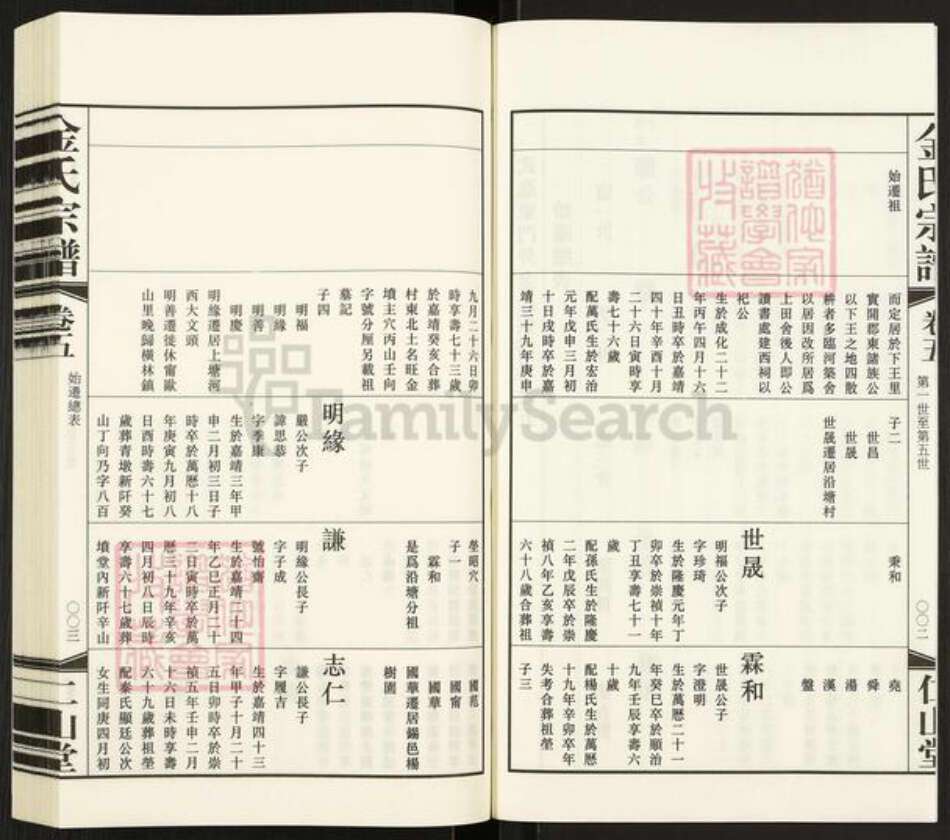 金氏宗譜
卷五
第一世至第五世
〇〇二
仁山堂
始遷祖
而定居於下王里
實開郡東諸族公
以下王之地四散
耕者多臨河築舍
以居因改所居爲
上田舍後人即公
讀書處建西祠以
祀公
生於成化二十二
年丙午四月十六
日丑時卒於嘉靖
四十年辛酉十月
二十六日寅時享
壽七十六歲
配萬氏生於宏治
元年戊申三月初
十日戌時卒於嘉
靖三十九年庚申
九月二十六日卯
時享壽七十三歲
於嘉靖癸亥合葬
村東北土名旺金
墳主穴丙山壬向
字號分厘另載祖
墓記
子四
明福
明緣
明善
明慶
明緣遷居上塘河
西大文頭
明善遷徙休甯歐
山里晚歸橫林鎮
子二
世昌
世晟
世晟遷居沿塘村
明緣
嚴公次子
諱思恭
字季康
生於嘉靖三年甲
申二月初三日子
時卒於萬曆十八
年庚寅九月初八
日酉時壽六十七
歲葬青墩新阡癸
山丁向乃字八百
秉和
世晟
明福公次子
字珍琦
生於隆慶元年丁
卯卒於崇禎十年
丁丑享壽七十一
歲
配孫氏生於隆慶
二年戊辰卒於崇
禎八年乙亥享壽
六十八歲合葬祖
塋昭穴
子一
霖和
是爲沿塘分祖
謙
明緣公長子
字子成
號怡齋
生於嘉靖二十四
年乙巳正月二十
二日寅時卒於萬
曆三十九年辛亥
四月初八日辰時
享壽六十七歲葬
墳堂內新阡辛山
堯
舜
湯
漢
盤
霖和
世晟公子
字澄明
生於萬曆二十一
年癸巳卒於順治
九年壬辰享壽六
十歲
配楊氏生於萬曆
十九年辛卯卒年
失考合葬祖塋
子三
國範
國甯
國華
國華遷居錫邑楊
樹園
志仁
謙公長子
字履吉
生於嘉靖四十三
年甲子十月二十
五日卯時卒於崇
禎五年壬申二月
十六日未時享壽
六十九歲葬祖塋
配秦氏顯廷公次
女生同庚四月初
金氏宗譜
卷五
始遷總表
〇〇三
仁山堂
FamilySearch